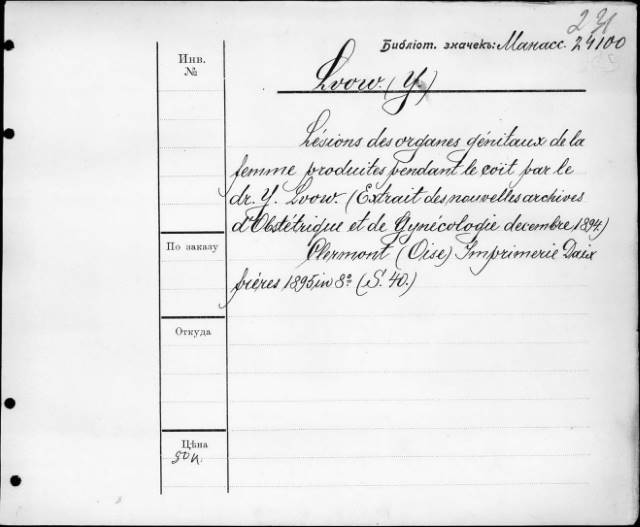 231
Библіот. значекъ: Манасс. 24100
Инв.
№
Lvow. (Y.)
Lésions des organes génitaux de la
femme produites pendant le coït par le
dr. Y. Lvow. (Extrait des nouvelles archives
d'Obstétrique et de Gynécologie decembre 1894.)
По заказу
Clermont (Oise) Imprimerie Daix
frères 1895 in 8º (S. 40.)
Откуда
Цѣна
50 к.